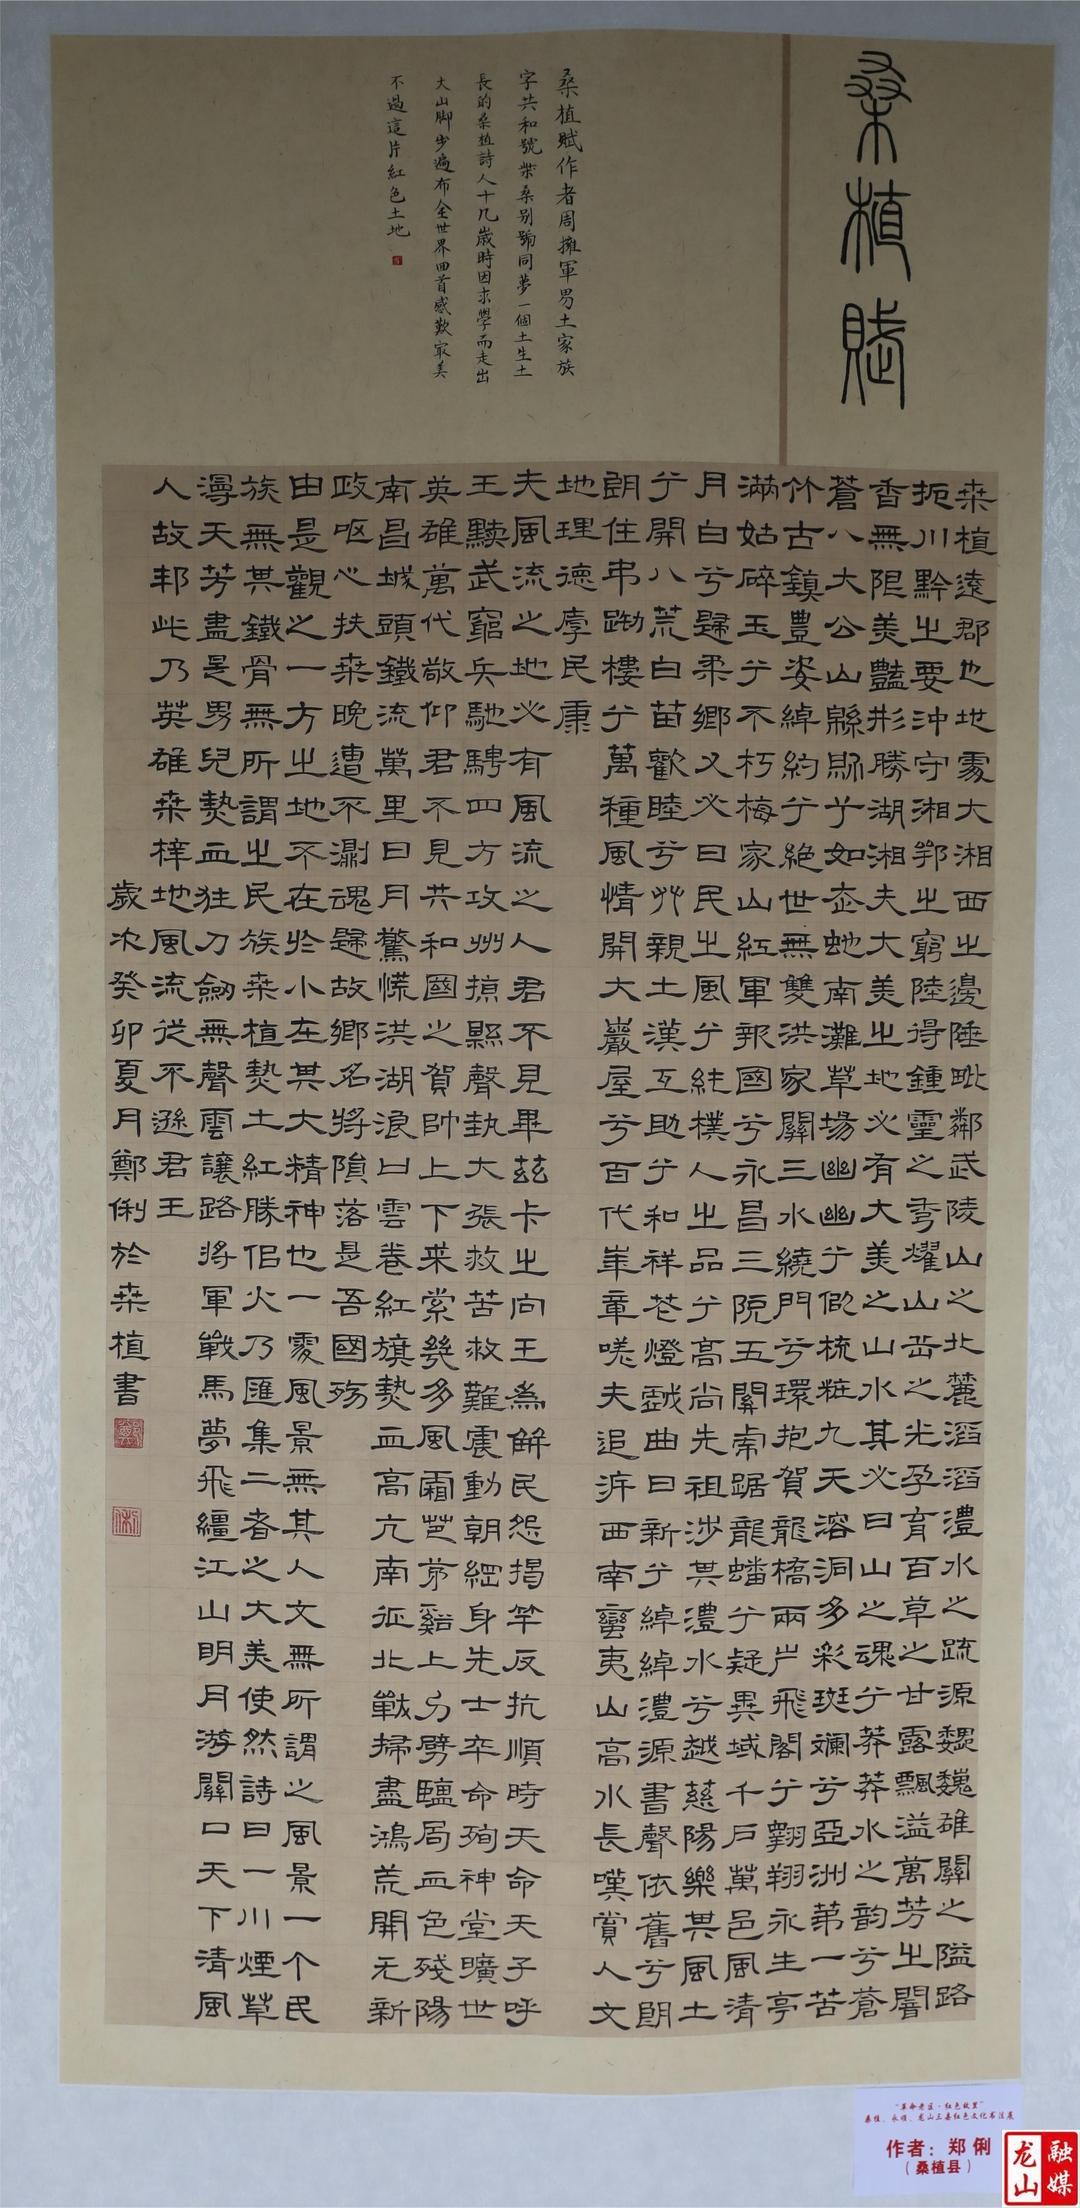 桑植賦
桑植賦作者周擁軍男土家族
字共和號柴桑别號同夢一個土生土
長的桑植詩人十几歲時因求學而走出
大山脚步遍布全世界回首感歎冣美
不過這片紅色土地
桒植遠郡也地處大湘西之邊陲毗鄰武陵山之北麓滔滔澧水之疏源巍巍雄關之隘路
扼川黔之要冲守湘鄂之窮陸得鍾靈之秀燿山岳之光孕育百草之甘露飄溢萬芳之闇
香無限美豔形勝湖湘夫大美之地必有大美之山水其必曰山之魂兮莽莽水之韵兮蒼
蒼八大公山緜緜兮如夽虵南灘草場幽幽兮似梳粧九天溶洞多彩斑斕兮亞洲第一苦
竹古鎮豊姿綽約兮絶世無雙洪家關三水繞門兮環抱賀龍橋兩岸飛閣兮翱翔永生亭
滿姑碎玉兮不朽梅家山紅軍報國兮永昌三院五關虎踞龍蟠兮疑異域千戶萬邑風清
月白兮歸柔鄉又必曰民之風兮純樸人之品兮高尚先祖涉其澧水兮越慈陽樂其風土
兮開八荒白苗歡睦兮艸親土漢互助兮和祥花燈戲曲日新兮綽綽澧源書聲依舊兮朗
朗住弔腳樓兮萬種風情開大巖屋兮百代華章嗟夫追泝西南蠻夷山高水長嘆賞人文
地理德厚民康
夫風流之地必有風流之人君不見畢兹卡之向王為解民怨揭竿反抗順時天命天子呼
王黷武窮兵馳騁四方攻州掠縣聲執大張救苦救難震動朝綱身先士卒命殉神堂曠世
英雄萬代敬仰君不見共和國之賀帥上下求索幾多風霜芭茅谿上刀劈鹽局血色殘陽
南昌城頭鐵流萬里日月驚慌洪湖浪口雲卷紅旗熱血高亢南征北戰掃盡鴻荒開元新
政呕心扶桒晚遭不測魂歸故鄉名將隕落是吾國殤
由是觀之一方之地不在於小在其大精神也一處風景無其人文無所謂之風景一个民
族無其鐵骨無所謂之民族桒植熱土紅勝佀火乃匯集二者之大美使然詩曰一川煙草
漫天芳盡是男兒熱血狂刀劍無聲雲讓路將軍戰馬夢飛繮江山明月游關口天下清風
人故邦此乃英雄桒梓地風流從不遜君王
歲次癸卯夏月鄭俐於桒植書
“革命老区·红色故里”
桑植、永顺、龙山三县红色文化书法展
作者：郑俐
（桑植县）
龙山融媒